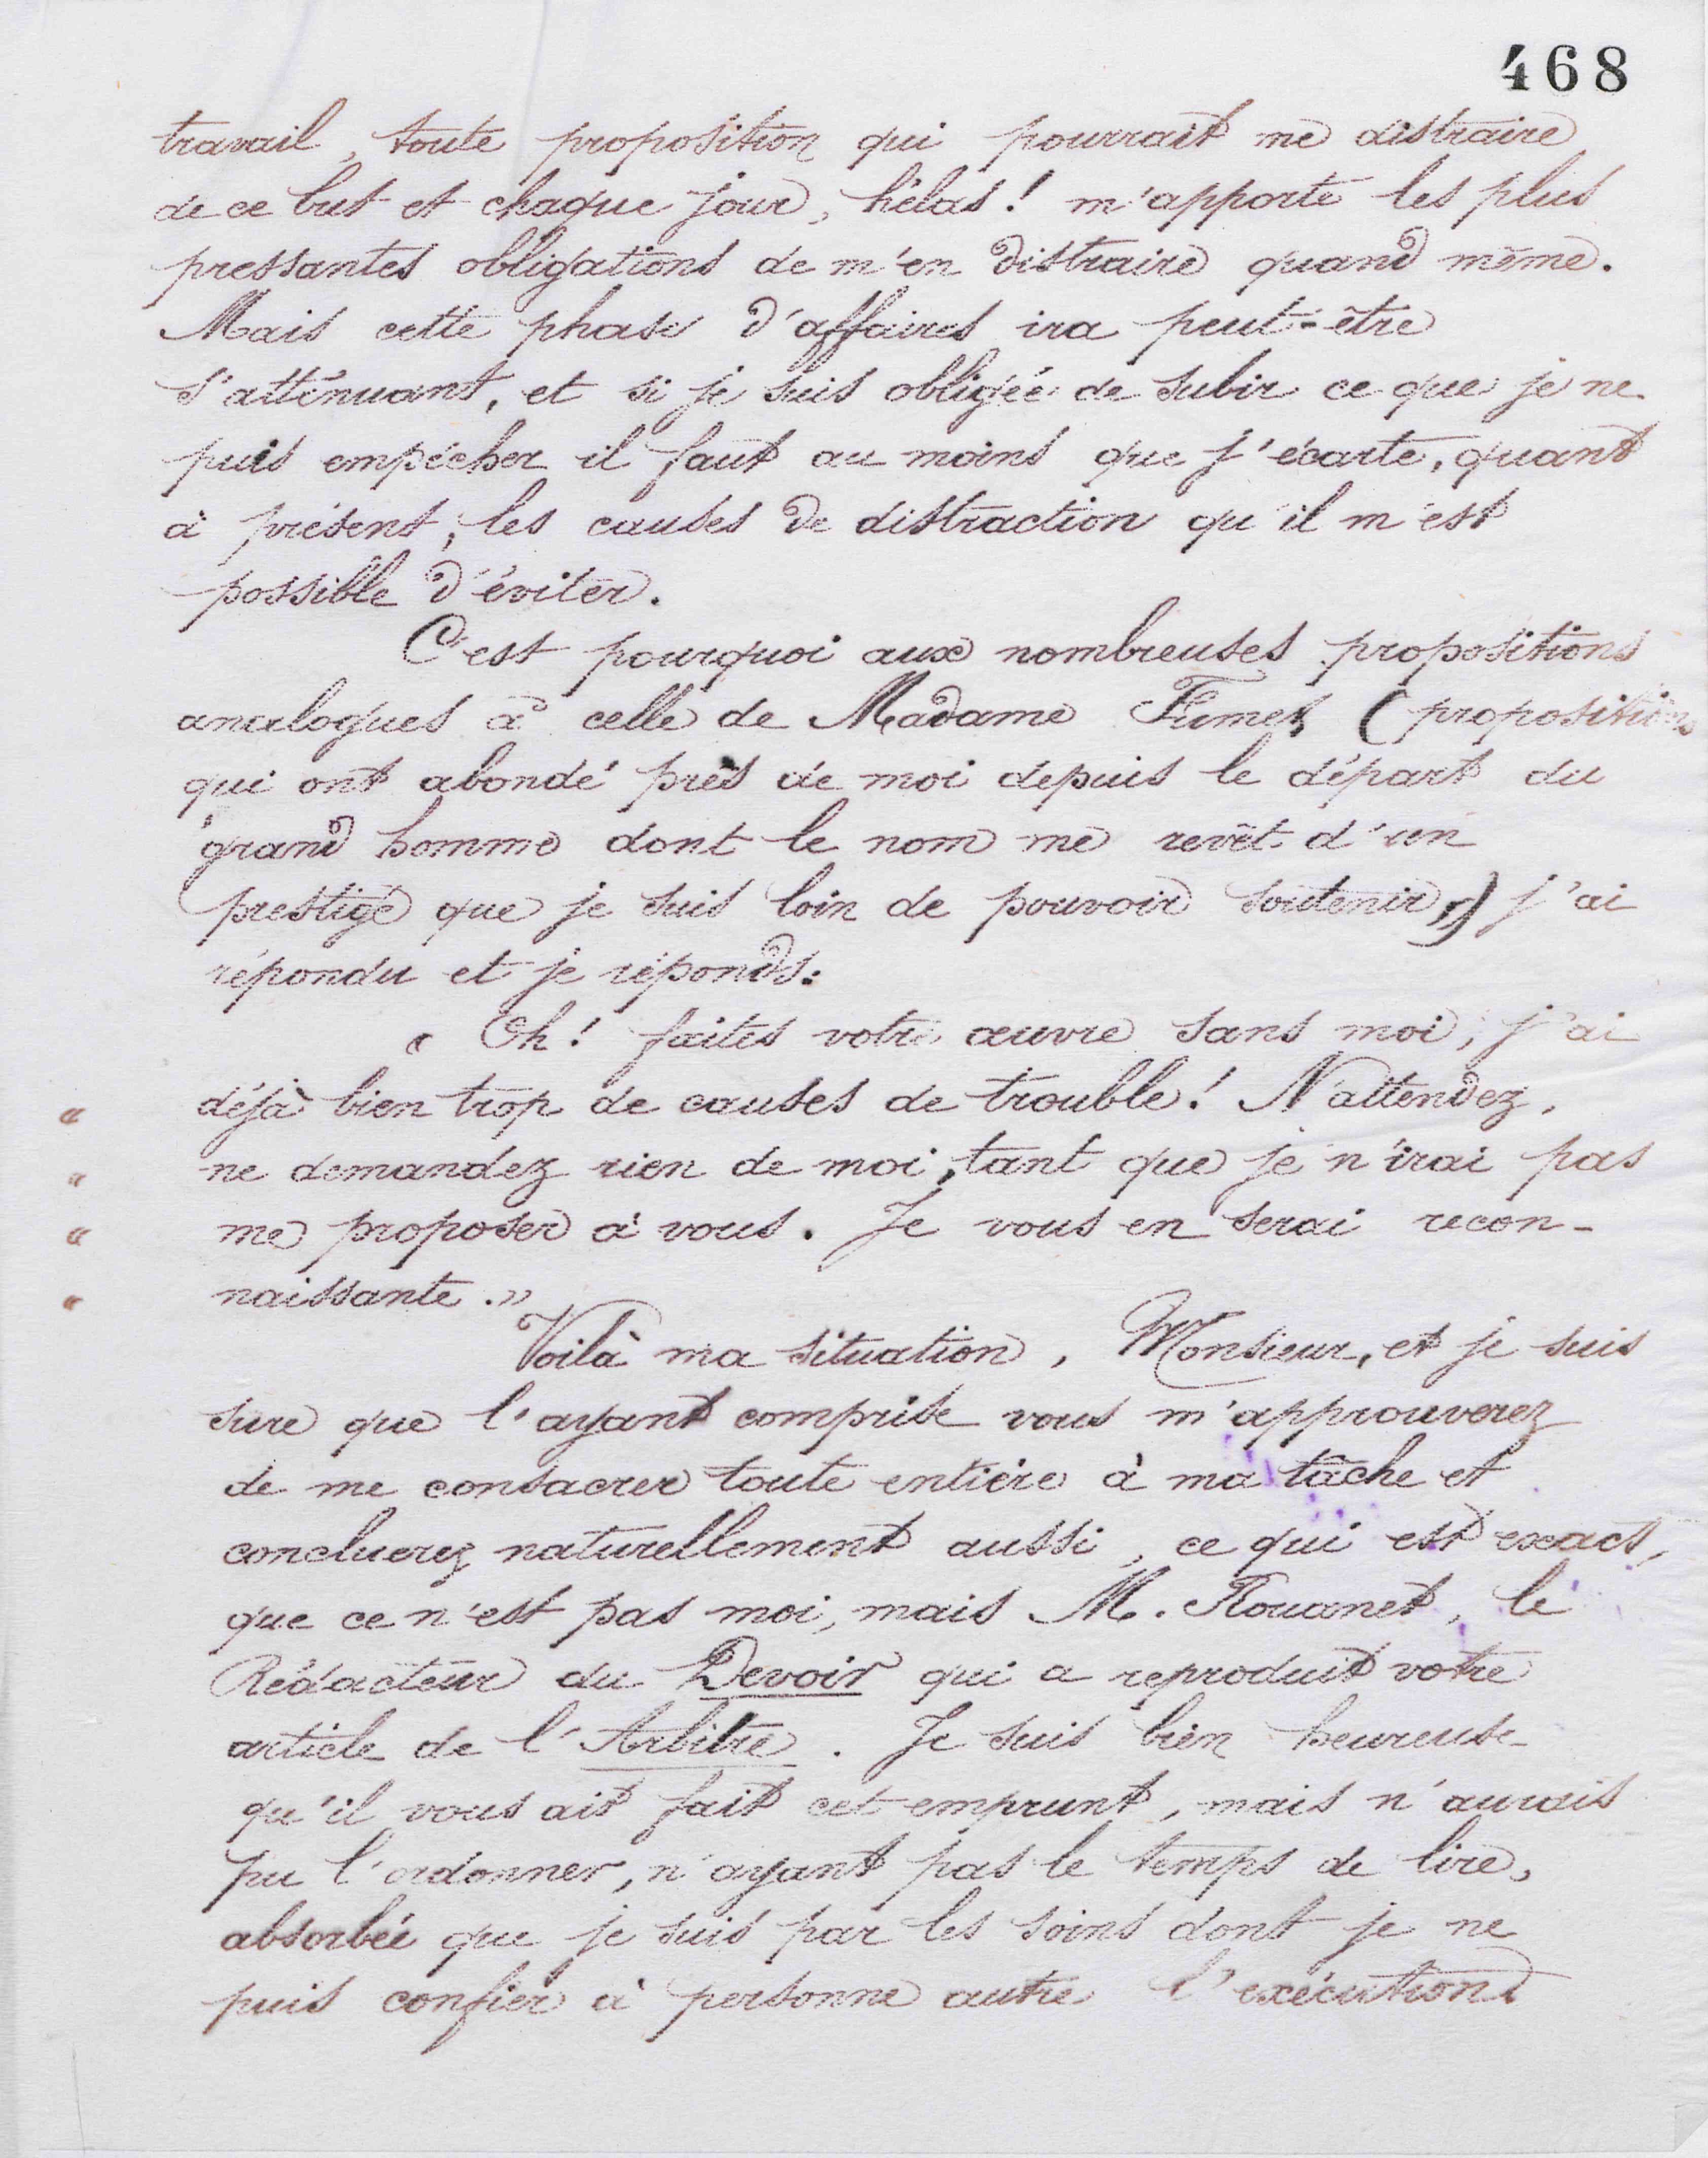 468
travail, toute proposition qui pourrait me distraire
de ce but et chaque jour, hélas! m'apporte les plus
pressantes obligations de m'en distraire quand même.
Mais cette phase d'affaires ira peut-être
s'atténuant, et si je suis obligée de subir ce que je ne
puis empêcher il faut au moins que j'écarte, quant
à présent, les causes de distraction qu'il m'est
possible d'éviter.
C'est pourquoi aux nombreuses propositions
analogues à celle de Madame Fumet (propositions
qui ont abondé près de moi depuis le départ du
grand homme dont le nom me revêt d'un
prestige que je suis loin de pouvoir soutenir,) j'ai
répondu et je réponds:
« Oh! faites votre œuvre sans moi, j'ai
« déjà bien trop de causes de trouble! N'attendez,
« ne demandez rien de moi, tant que je n'irai pas
« me proposer à vous. Je vous en serai recon-
« naissante. »
Voilà ma situation, Monsieur, et je suis
sure que l'ayant comprise vous m'approuverez
de me consacrer toute entière à ma tâche et
concluerez naturellement aussi, ce qui est exact,
que ce n'est pas moi, mais M. Rouanet, le
Rédacteur du Devoir qui a reproduit votre
article de l'Arbitre. Je suis bien heureuse
qu'il vous ait fait cet emprunt, mais n'aurais
pu l'ordonner, n'ayant pas le temps de lire,
absorbée que je suis par les soins dont je ne
puis confier à personne autre l'exécution.